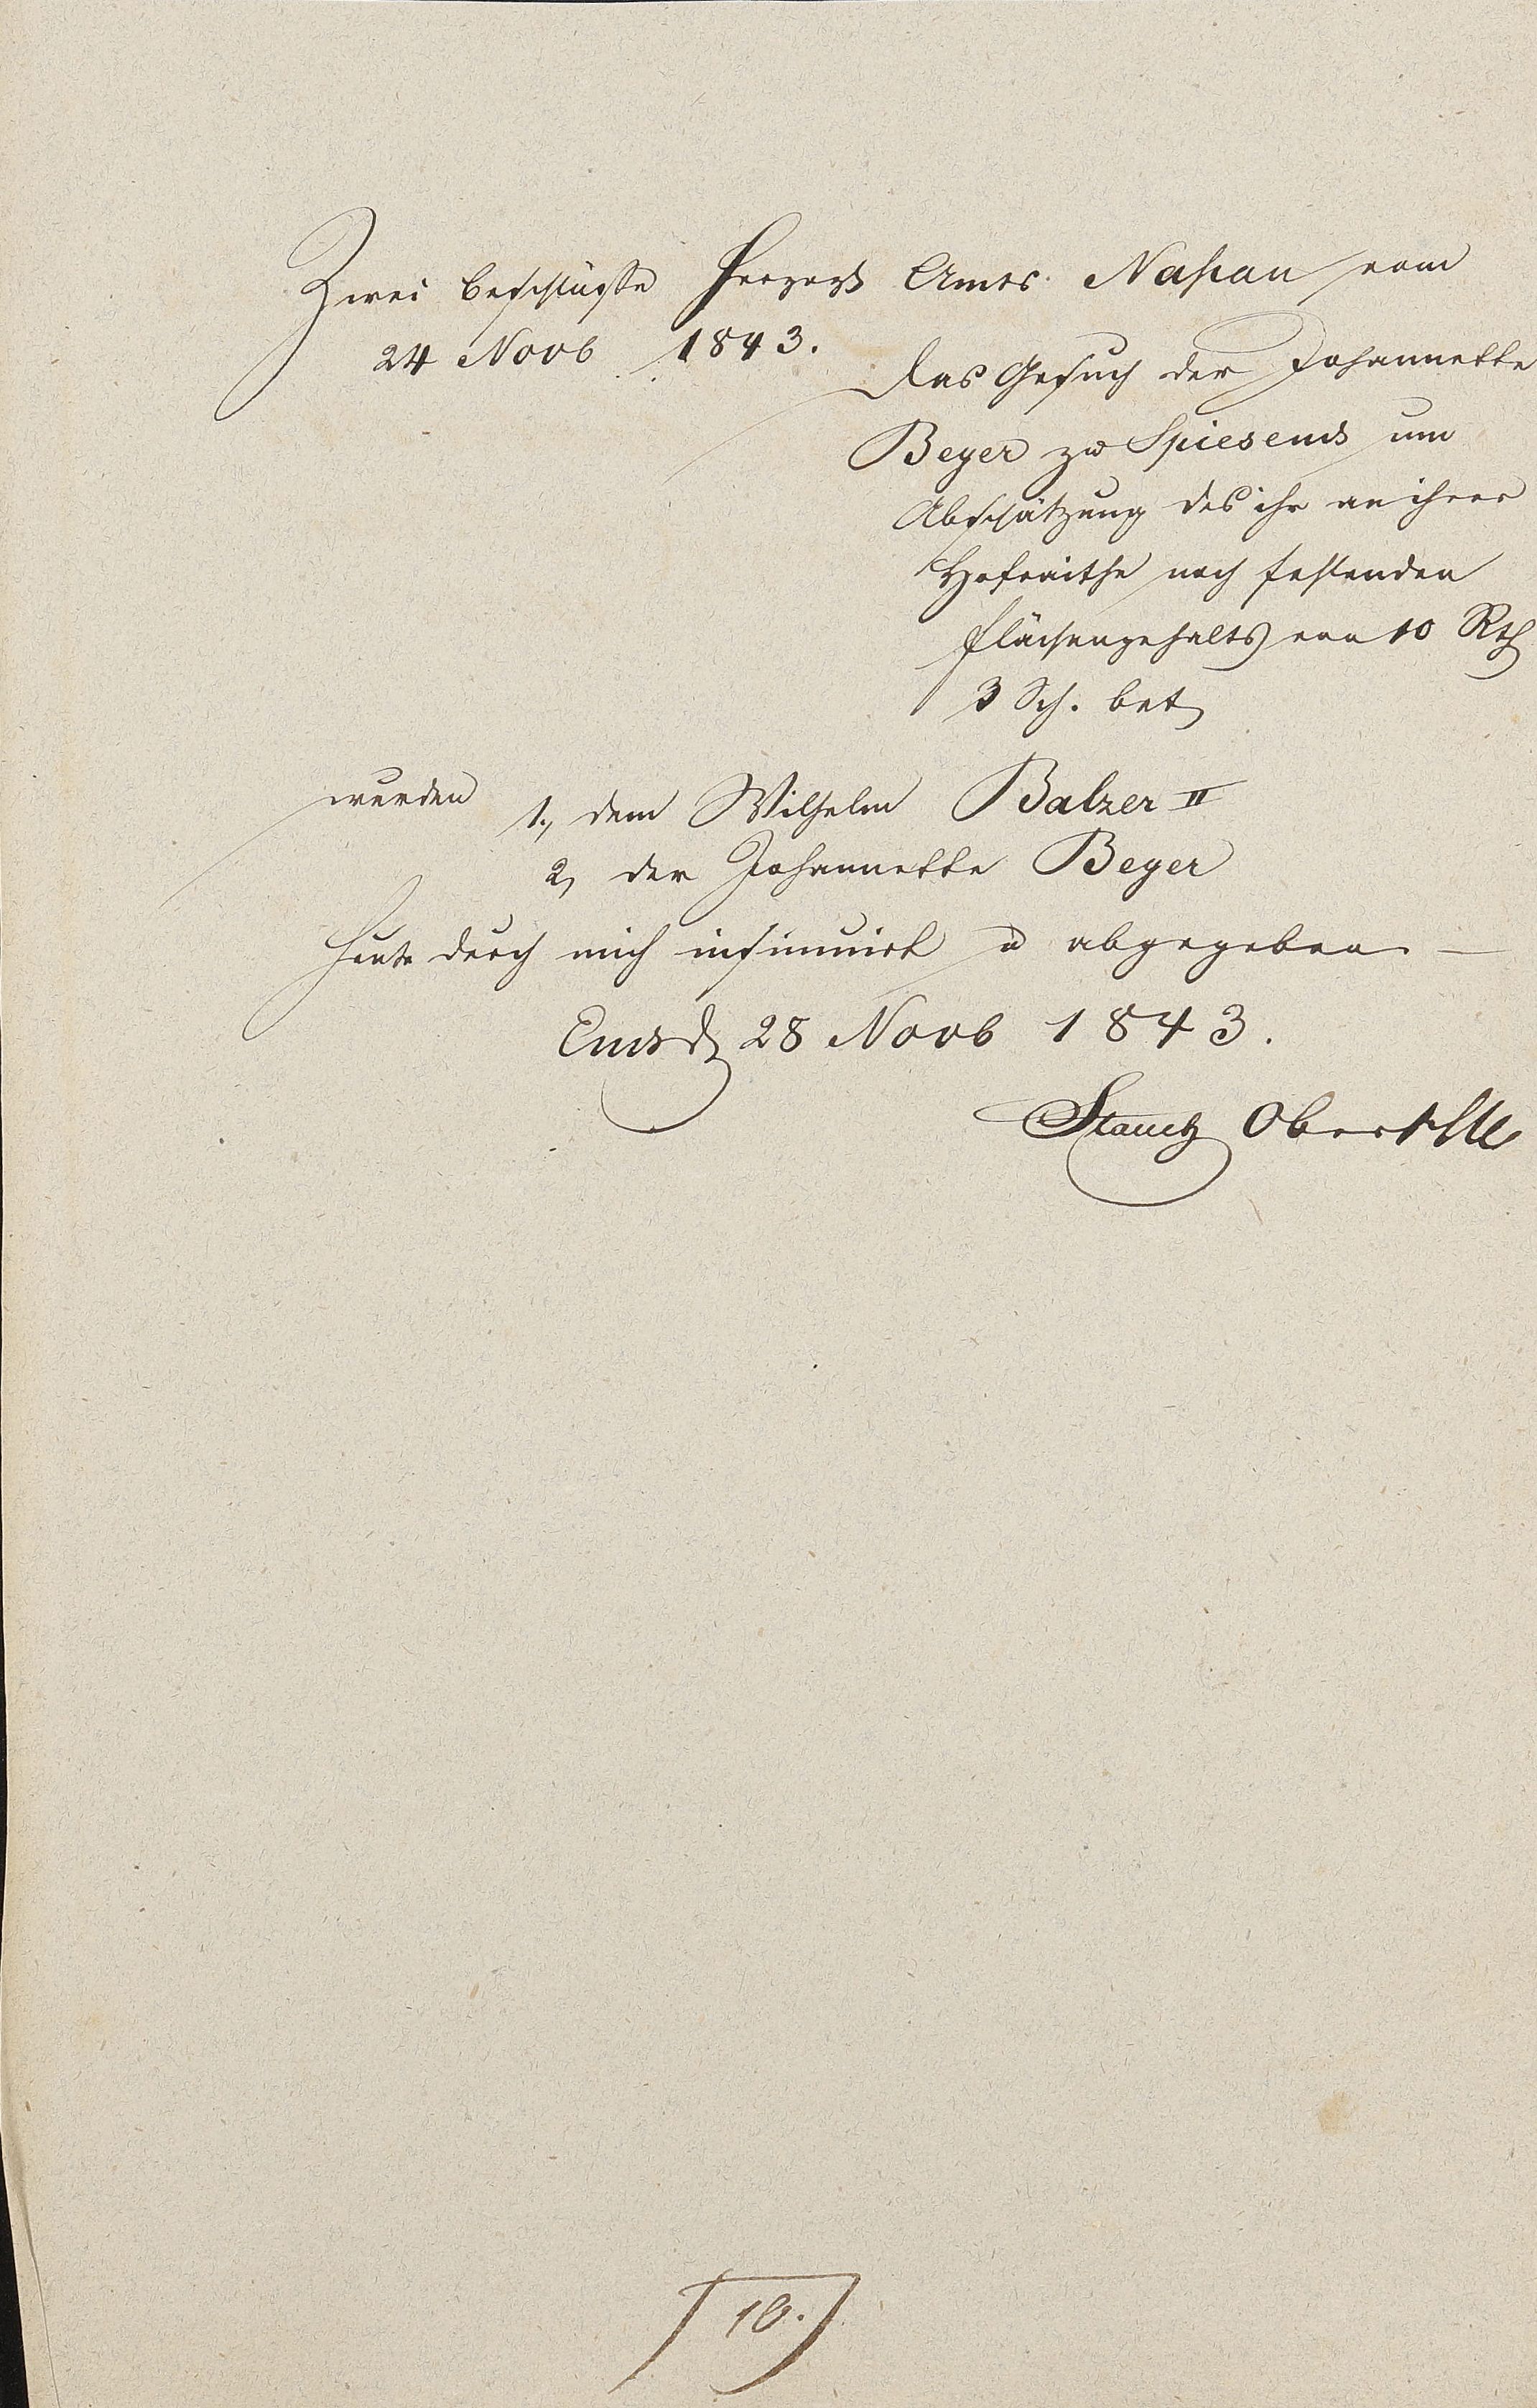 Zwei Beschlüsse Herzogl Amts Naßau vom
24 Novb 1843.
das Gesuch der Johannette
Beyer zu Spiesems um
Abschätzung des ihr an ihrer
Hofraithe noch fehlenden
Flächengehalts von 10 Rth
3 Sch. bet
wurden 1., dem Wilhelm Balzer II
2, der Johannette Beyer
heute durch mich insinuirt u abgegeben. —
Ems d 28 Novb 1843.
10.